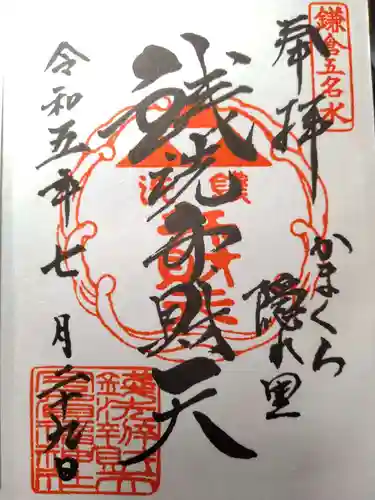 鎌倉五名水
奉拝
かまくら
隠れ里
銭洗弁財天
令和五年七月二十九日